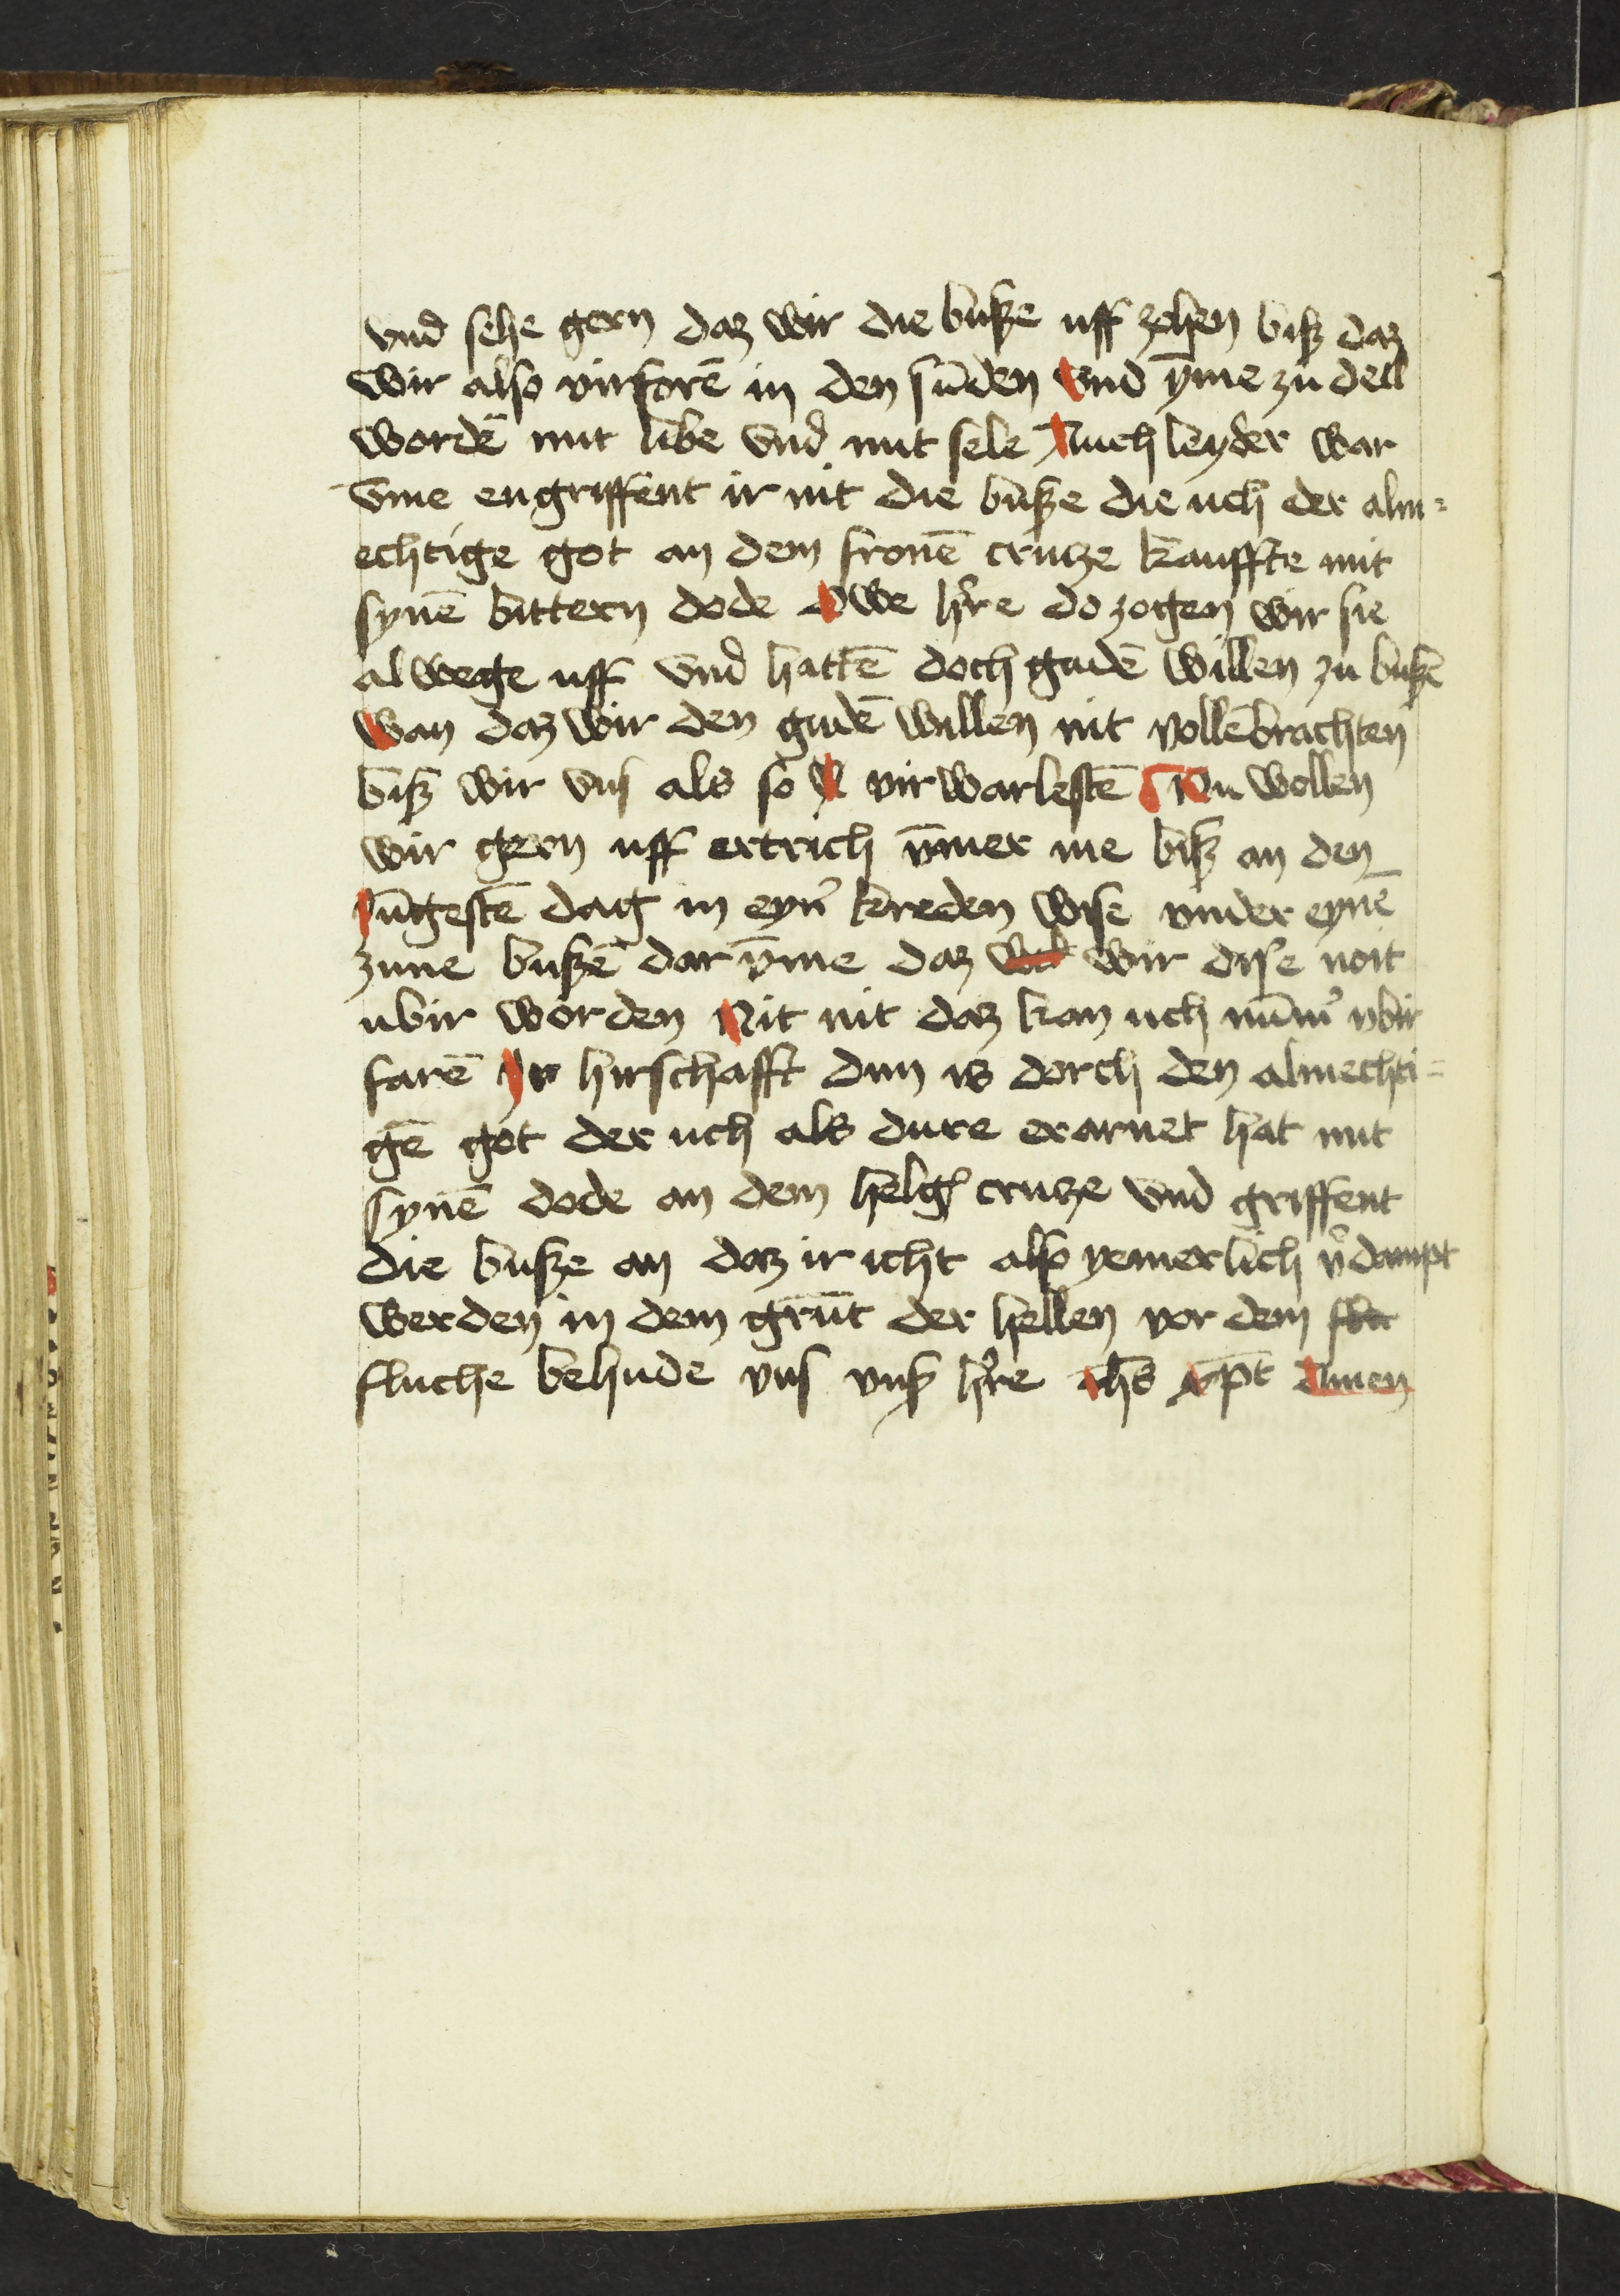 vnd sehe gern daz wir die busze uff zehen bisz daz
wir also virforē in den sūden vnd ȳme zu dell
wordē mit libe vnd mit sele Auch leyder war
vme engriffent ir nit die busze die uch der alm=
echtige got an dem fronē cruze kauffte mit
synē bittern dode Owe h're do zogen wir sie
alwege uff vnd hattē doch gudē willen zu buszē
wan daz wir den gudē willen nit vollēbrachten
bisz wir vns als so virwarlestē Nu wollen
wir gern uff ertrich ȳmer me bisz an den
jūgestē dag in eyn' kreden wise vnder eynē
zune buszē dar ȳme daz wir dise noit
ubir worden Nit nit daz kan uch nūm' vbir
farē Ir hirschafft dun is dorch den almechti=
gē got der uch als dure erarnet hat mit
synē dode an dem helgē cruze vnd griffent
die busze an daz ir icht also yemerlich v'dampt
werden in dem grūt der hellen vor dem
fluche behude vns vns' h're ihs xp̄t Amen